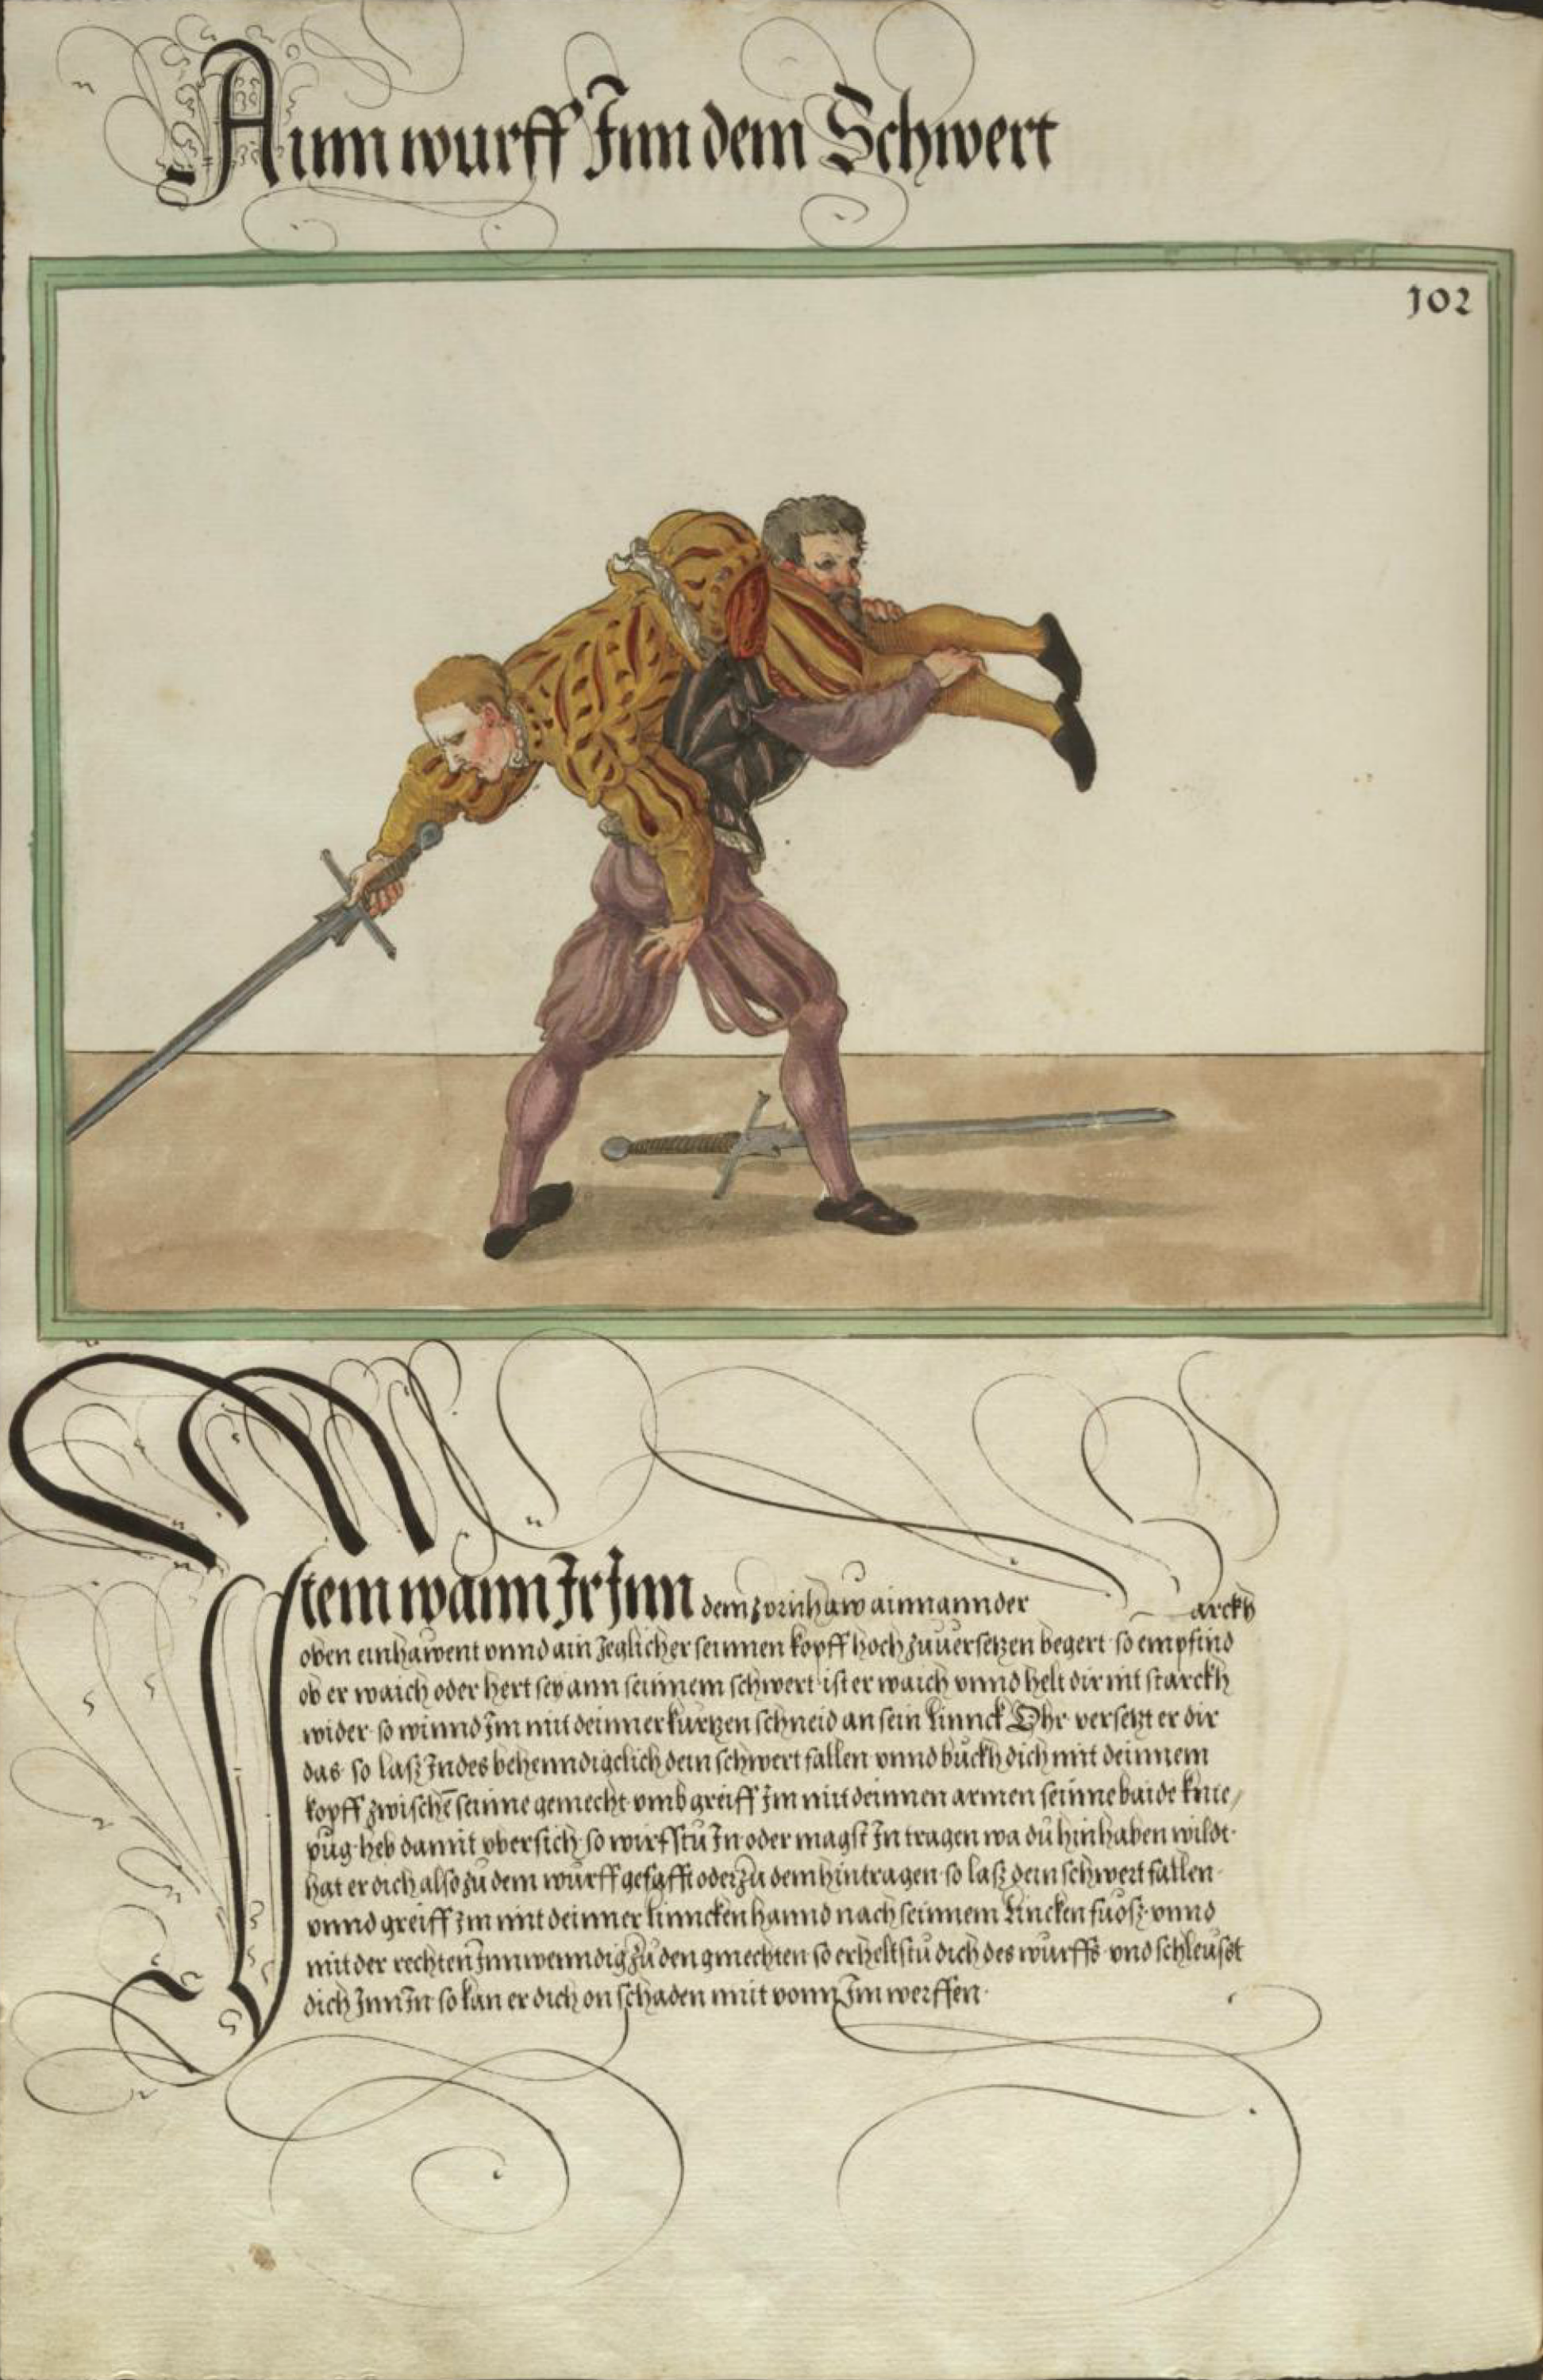 Ainn wurff Inn dem Schwert
102
Item wann Ir Inn dem zornhaw ainnannder starckh
oben einhawent vnnd ain Jeglicher seinnen kopff hoch zuuersetzen begert so empfind
ob er waich oder hert sey ann seinnem schwert ist er waich vnnd helt dir nit starckh
wider so winnd Im mit deinner kurtzen schneid an sein linnck Ohr versetzt er dir
das so lasz Indes behenndigclich dein schwert fallen vnnd buckh dich mit deinnem
kopff zwischē seinne gemecht vmbgreiff Im mit deinnen armen seinne baide knie/
pug heb damit vbersich so wirfstu In oder magst In tragen wa du hin haben wildt
hat er dich also zu dem wurff gefasst oder zu dem hintragen so lasz dein schwert fallen
vnnd greiff Im mit deinner linncken hannd nach seinnem Lincken fuosz vnnd
mit der rechten Innwenndig zu den gmechten so erheltstu dich des wurffs vnd schleusst
dich Inn In so kan er dich on schaden nit vonn Im werffen